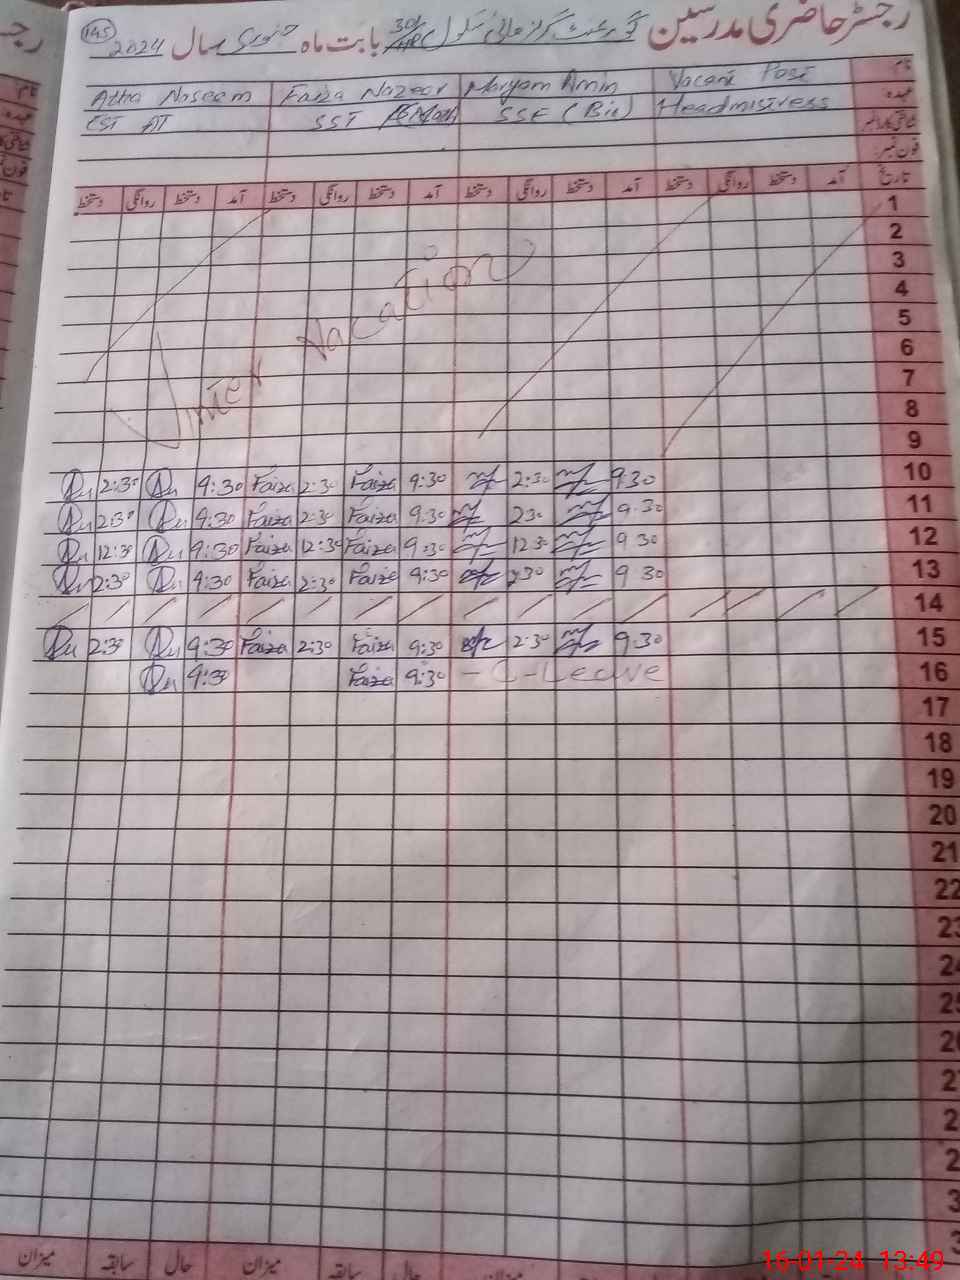 رجسٹر حاضری مدرسین گورنمنٹ گرلز ہائی سکول 30/HR بابت ماہ جنوری سال 2024 145
نام Vacant Post Maryam Amin Faiza Nazeer Atha Naseem
عہدہ Headmistress SSE (Bio) SST EST AT
شناختی کارڈ نمبر
فون نمبر:
تاریخ آمد دستخط روانگی دستخط آمد دستخط روانگی دستخط آمد دستخط روانگی دستخط آمد دستخط روانگی دستخط
1
2
3
4
5
6
7
8
9
Winter Vacation
2:30 9:30 Faiza 2:30 Faiza 9:30 2:30 9:30 10
2:30 9:30 Faiza 2:30 Faiza 9.30 2 30 9.30 11
12:30 9:30 Faiza 12:30 Faiza 9:30 12 30 9 30 12
2:30 9:30 Faiza 2:30 Faiza 9:30 2 30 9 30 13
14
2:30 9:30 Faiza 2:30 Faiza 9:30 2:30 9.30 15
9:30 Faiza 9:30 - C-Leave 16
17
18
19
20
21
22
23
24
25
میزان سابقہ حال میزان سابقہ حال میزان
16-01-24 13:49